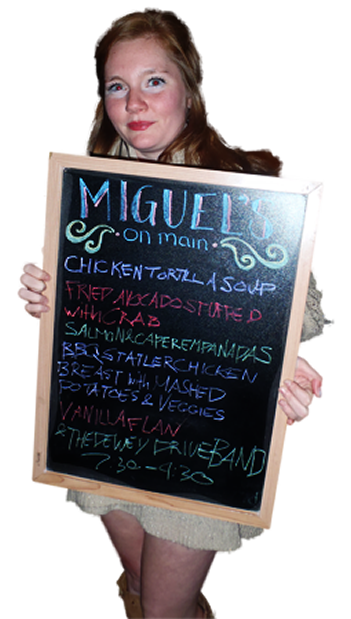 MIGUEL'S
on main
CHICKEN TORTILLA SOUP
FRIED AVOCADO STUFFED
with CRAB
SALMON & CAPER EMPANADAS
BBQ STATLER CHICKEN
BREAST with MASHED
POTATOES & VEGGIES
VANILLA FLAN
& THE DEWEY DRIVE BAND
7:30-9:30